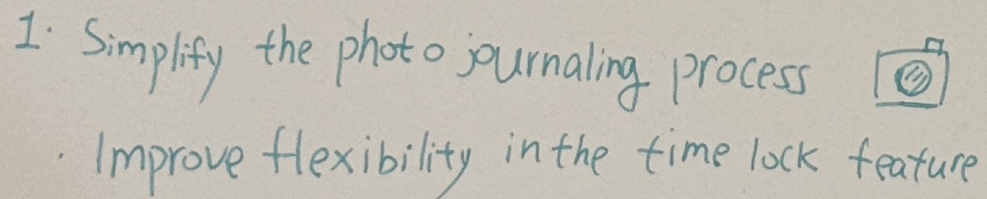 1. Simplify the photo journaling process
. Improve flexibility in the time lock feature